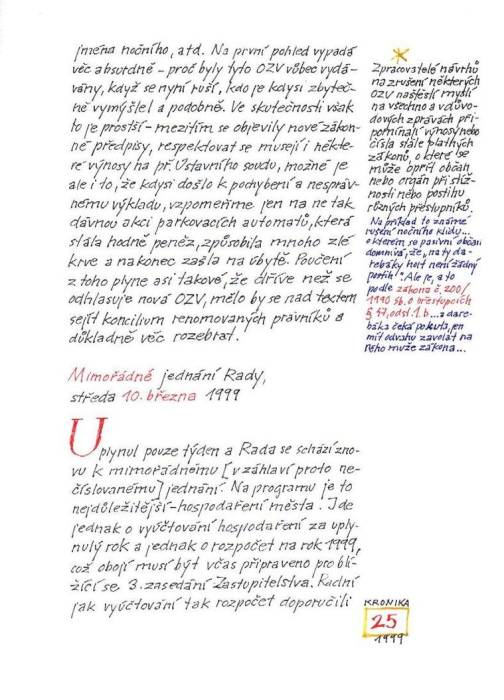 jména nočního, atd. Na první pohled vypadá
věc absurdně – proč byly tyto OZV vůbec vydá-
vány, když se nyní ruší, kdo je kdysi zbyteč-
ně vymýšlel a podobně. Ve skutečnosti však
to je prostší – mezitím se objevily nové zákon-
né předpisy, respektovat se musejí i někte-
ré výnosy na př. Ústavního soudu, možné je
ale i to, že kdysi došlo k pochybení a nespráv-
nému výkladu, vzpomeňme jen na ne tak
dávnou akci parkovacích automatů, která
stála hodně peněz, způsobila mnoho zlé
krve a nakonec zašla na úbytě. Poučení
z toho plyne asi takové, že dříve než se
odhlasuje nová OZV, mělo by se nad textem
sejít koncilium renomovaných právníků a
důkladně věc rozebrat.
Mimořádné jednání Rady,
středa 10. března 1999
Uplynul pouze týden a Rada se schází zno-
vu k mimořádnému [v záhlaví proto ne-
číslovanému] jednání. Na programu je to
nejdůležitější – hospodaření města. Jde
jednak o vyúčtování hospodaření za uply-
nulý rok a jednak o rozpočet na rok 1999,
což obojí musí být včas připraveno pro blí-
žící se 3. zasedání Zastupitelstva. Radní
jak vyúčtování tak rozpočet doporučili
Zpracovatelé návrhů
na zrušení některých
OZV naštěstí myslí
na všechno a v důvo-
dových zprávách při-
pomínají výnosy nebo
čísla stále platných
zákonů, o které se
může opřít občan
nebo orgán při stíž-
nosti nebo postihu
různých přestupníků.
Na příklad to známé
rušení nočního klidu...
o kterém se pasivní občan
domnívá, že "na ty da-
rebáky holt není žádný
postih". Ale je, a to
podle zákona č. 200/
1990 sb. o přestupcích
§ 47, odst. 1. b ...a dare-
báka čeká pokuta, jen
mít odvahu zavolat na
něho muže zákona...
KRONIKA
25
1999